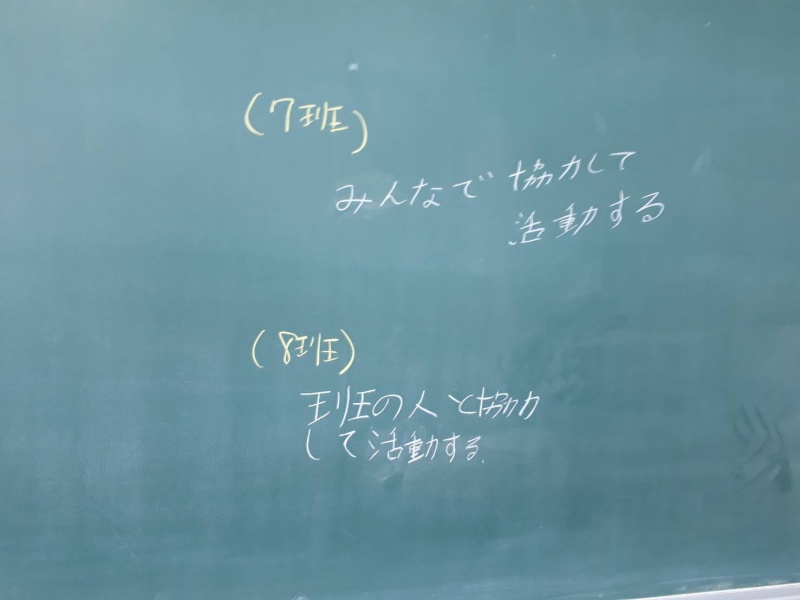 (7班)
みんなで協力して
活動する
(8班)
班の人と協力
して活動する.